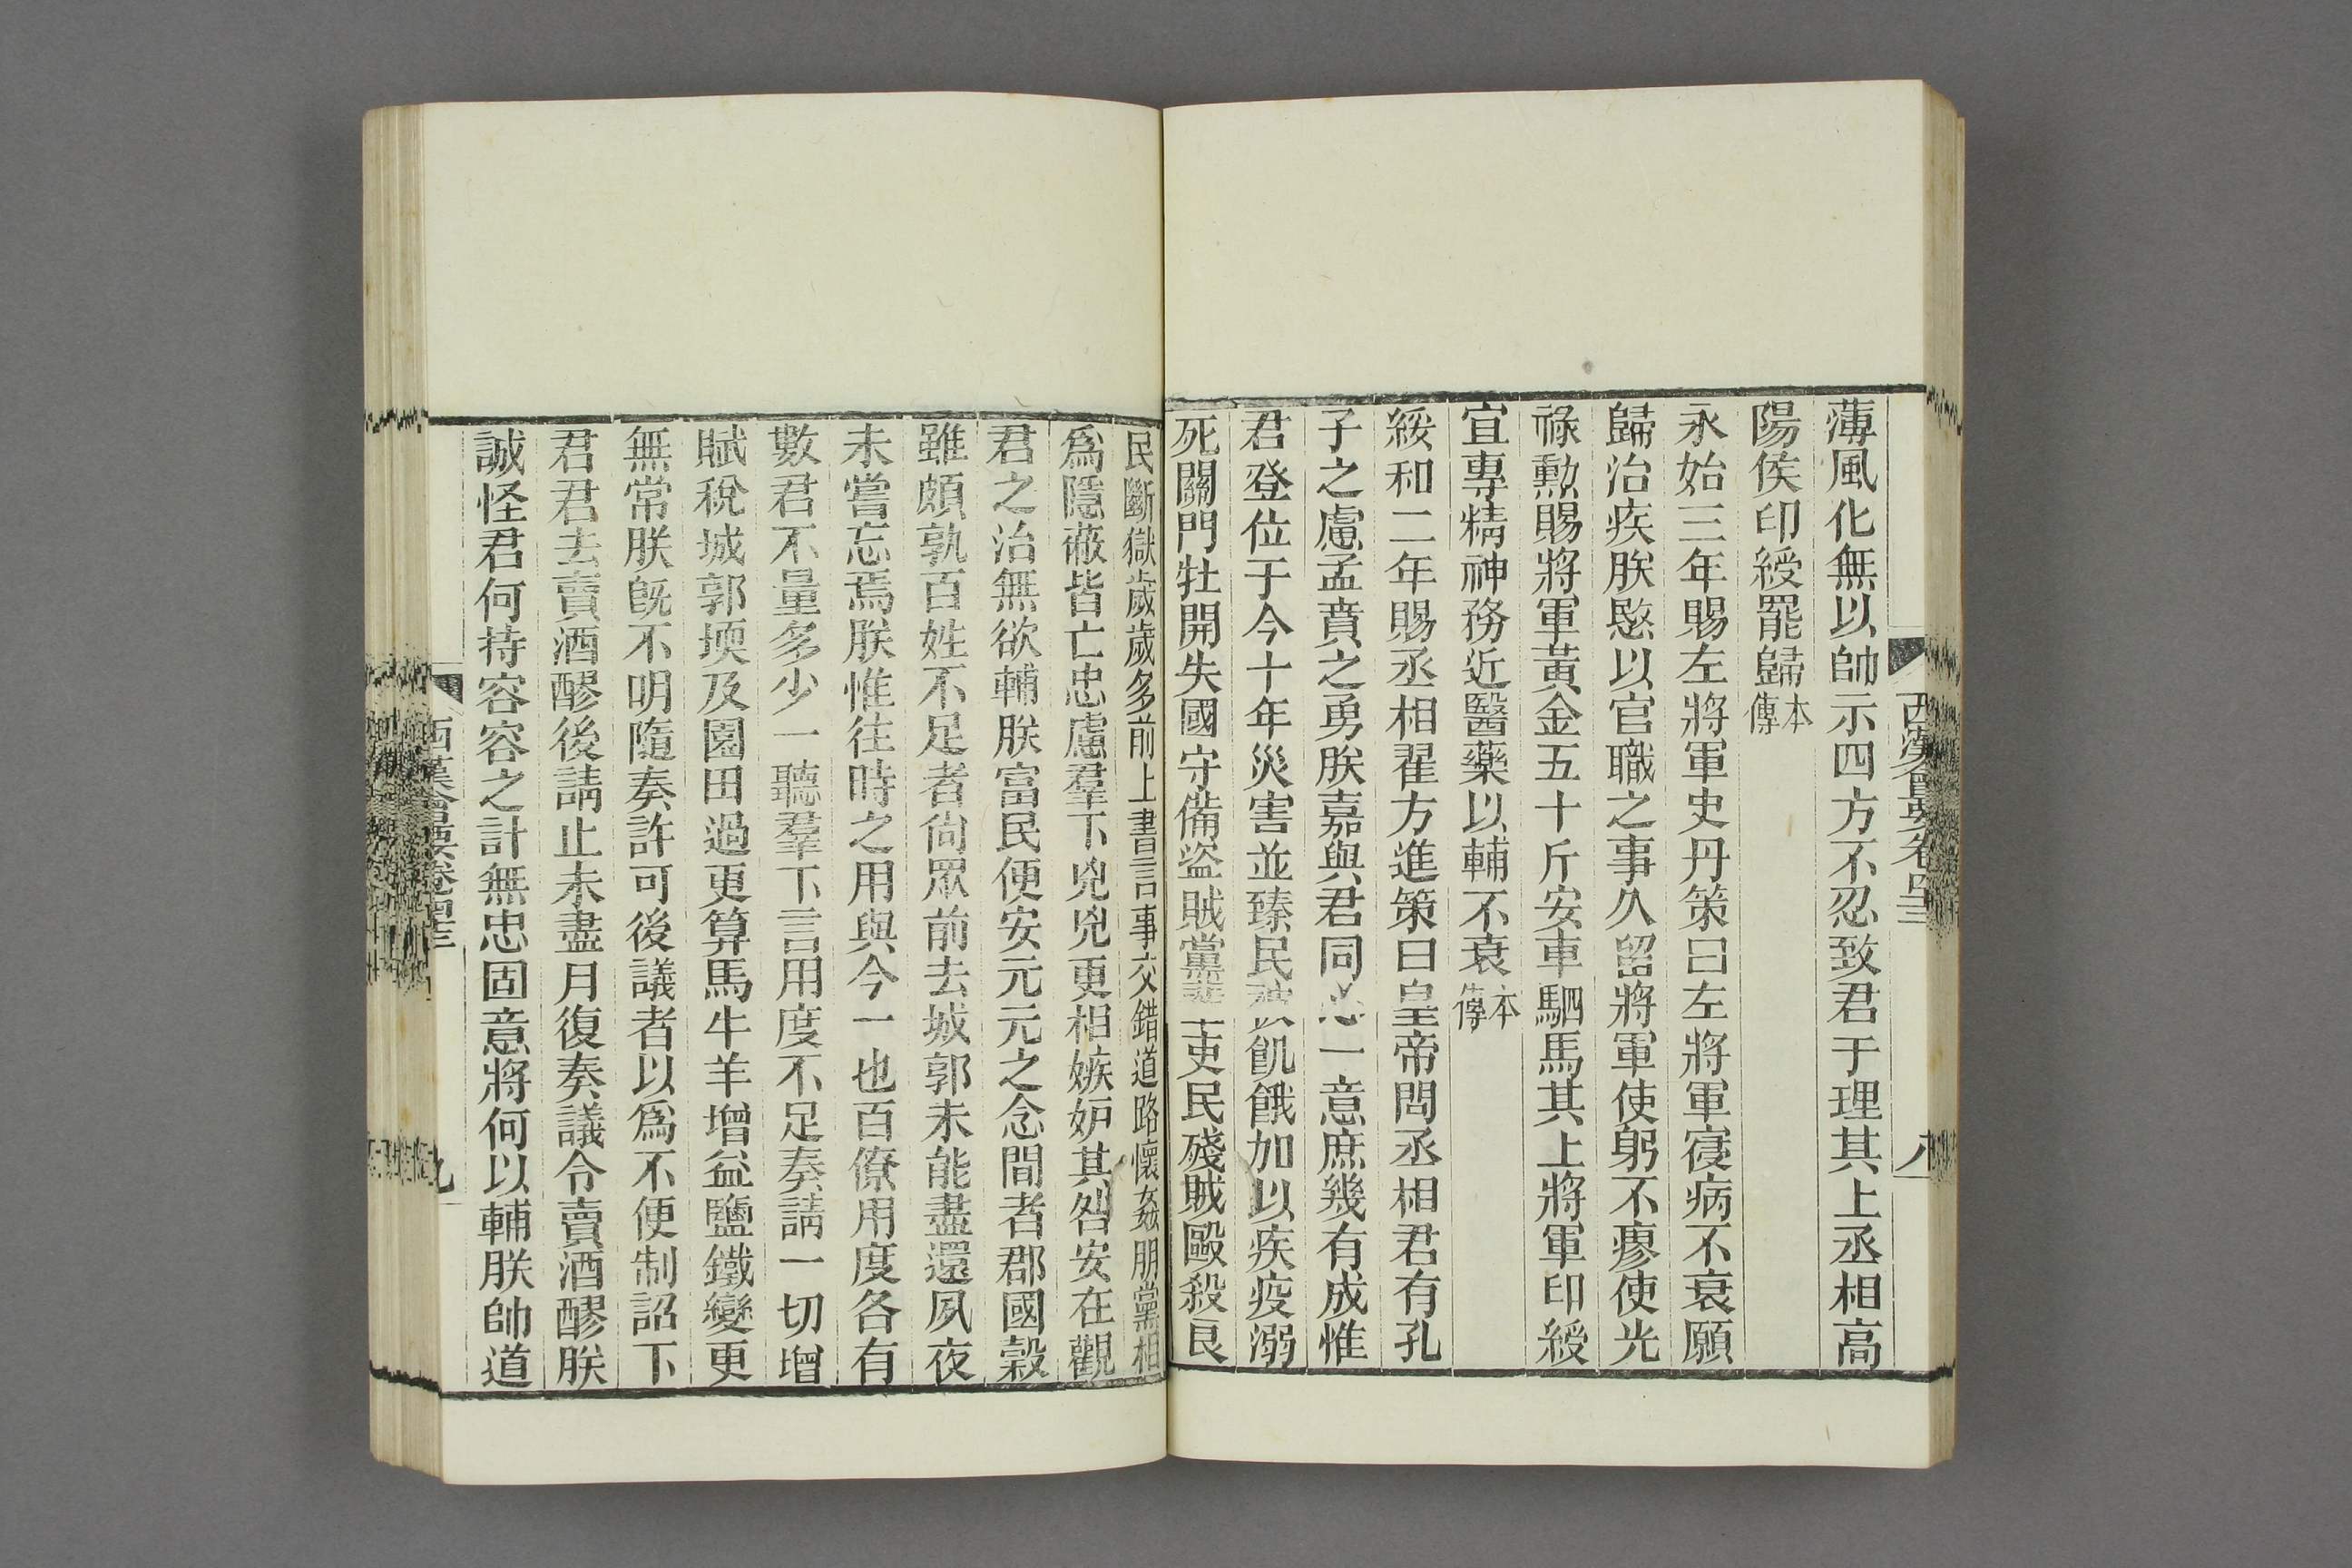 薄風化無以帥示四方不忍致君于理其上丞相高
陽侯印綬罷歸本傳
永始三年賜左將軍史丹策曰左將軍寑病不衰願
歸治疾朕愍以官職之事久留將軍使躬不瘳使光
祿勳賜將軍黃金五十斤安車駟馬其上將軍印綬
宜專精神務近醫藥以輔不衰本傳
綏和二年賜丞相翟方進策曰皇帝問丞相君有孔
子之慮孟賁之勇朕嘉與君同一意庶幾有成惟
君登位于今十年災害並臻民飢餓加以疾疫溺
死關門牡開失國守備盜賊黨吏民殘賊毆殺良
民斷獄歲歲多前上書言事交錯道路懷姦朋黨相
爲隱蔽皆亡忠慮羣下兇兇更相嫉妒其咎安在觀
君之治無欲輔朕富民便安元元之念間者郡國穀
雖頗孰百姓不足者尙眾前去城郭未能盡還夙夜
未嘗忘焉朕惟往時之用與今一也百僚用度各有
數君不量多少一聽羣下言用度不足奏請一切增
賦稅城郭堧及園田過更算馬牛羊增益鹽鐵變更
無常朕旣不明隨奏許可後議者以爲不便制詔下
君君去賣酒醪後請止未盡月復奏議令賣酒醪朕
誠怪君何持容容之計無忠固意將何以輔朕帥道
西漢會要卷四三
九